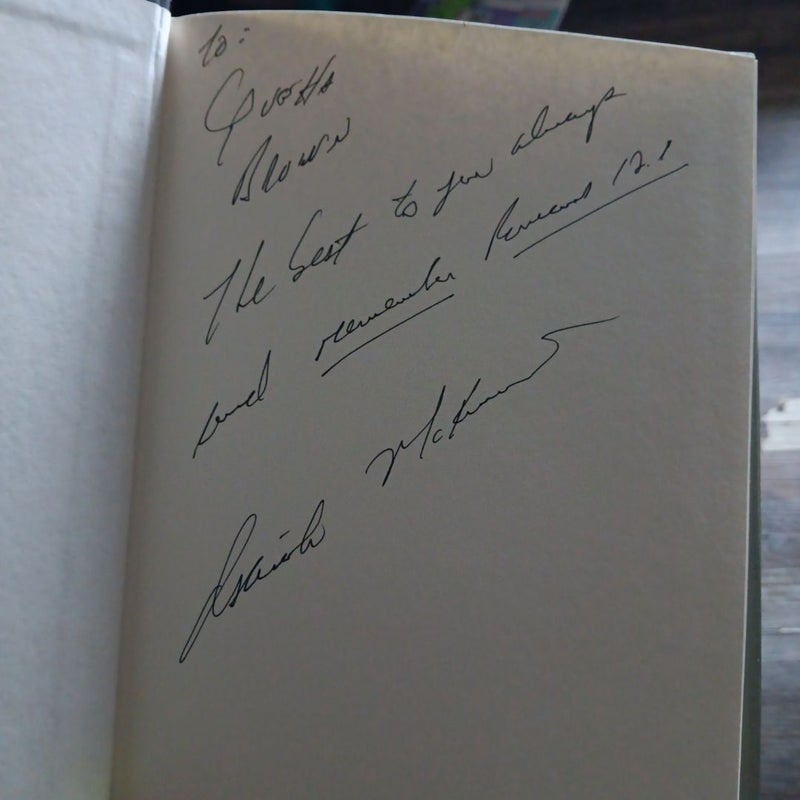 To:
Brown
The best to you always
and remember Romans 12:1
Isaiah McKinnon